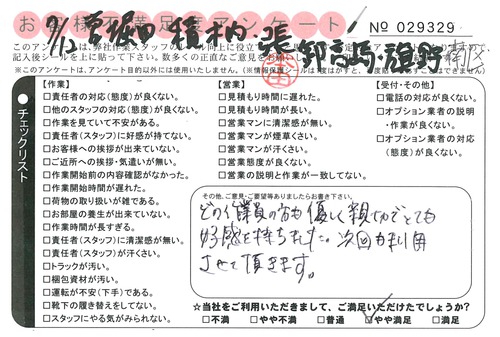 お客様不満足度アンケート
№ 029329
このアンケートは、弊社作業スタッフの
記入後シールを上に貼って下さい。
※このアンケートは、アンケート目的以外には使用いたしません。
チェックリスト
【作業】
□責任者の対応(態度)が良くない。
□他のスタッフの対応(態度)が良くない。
□作業を見ていて不安がある。
□責任者(スタッフ)に好感が持てない。
□お客様への挨拶が出来ていない。
□ご近所への挨拶・気遣いが無い。
□作業開始前の内容確認がなかった。
□作業開始時間が遅れた。
□荷物の取り扱いが雑である。
□お部屋の養生が出来ていない。
□作業時間が長すぎる。
□責任者(スタッフ)に清潔感が無い。
□責任者(スタッフ)が汗くさい。
□トラックが汚い。
□梱包資材が汚い。
□運転が不安(下手)である。
□靴下の履き替えをしてない。
□スタッフにやる気がみられない。
【営業】
□見積もり時間に遅れた。
□見積もり時間が長い。
□営業マンに清潔感が無い。
□営業マンが煙草くさい。
□営業マンが汗くさい。
□営業態度が良くない。
□営業の説明と作業が一致してない。
【受付・その他】
□電話の対応が良くない。
□オプション業者の説明
・作業が良くない。
□オプション業者の対応
(態度)が良くない。
その他、ご意見・ご要望等ありましたらお書き下さい。
どの作業員の方も優しく親切でとても
好感を持ちました。次回も利用
させて頂きます。
☆当社をご利用いただきまして、ご満足いただけたでしょうか?
□不満 □やや不満 □普通 □やや満足 □満足